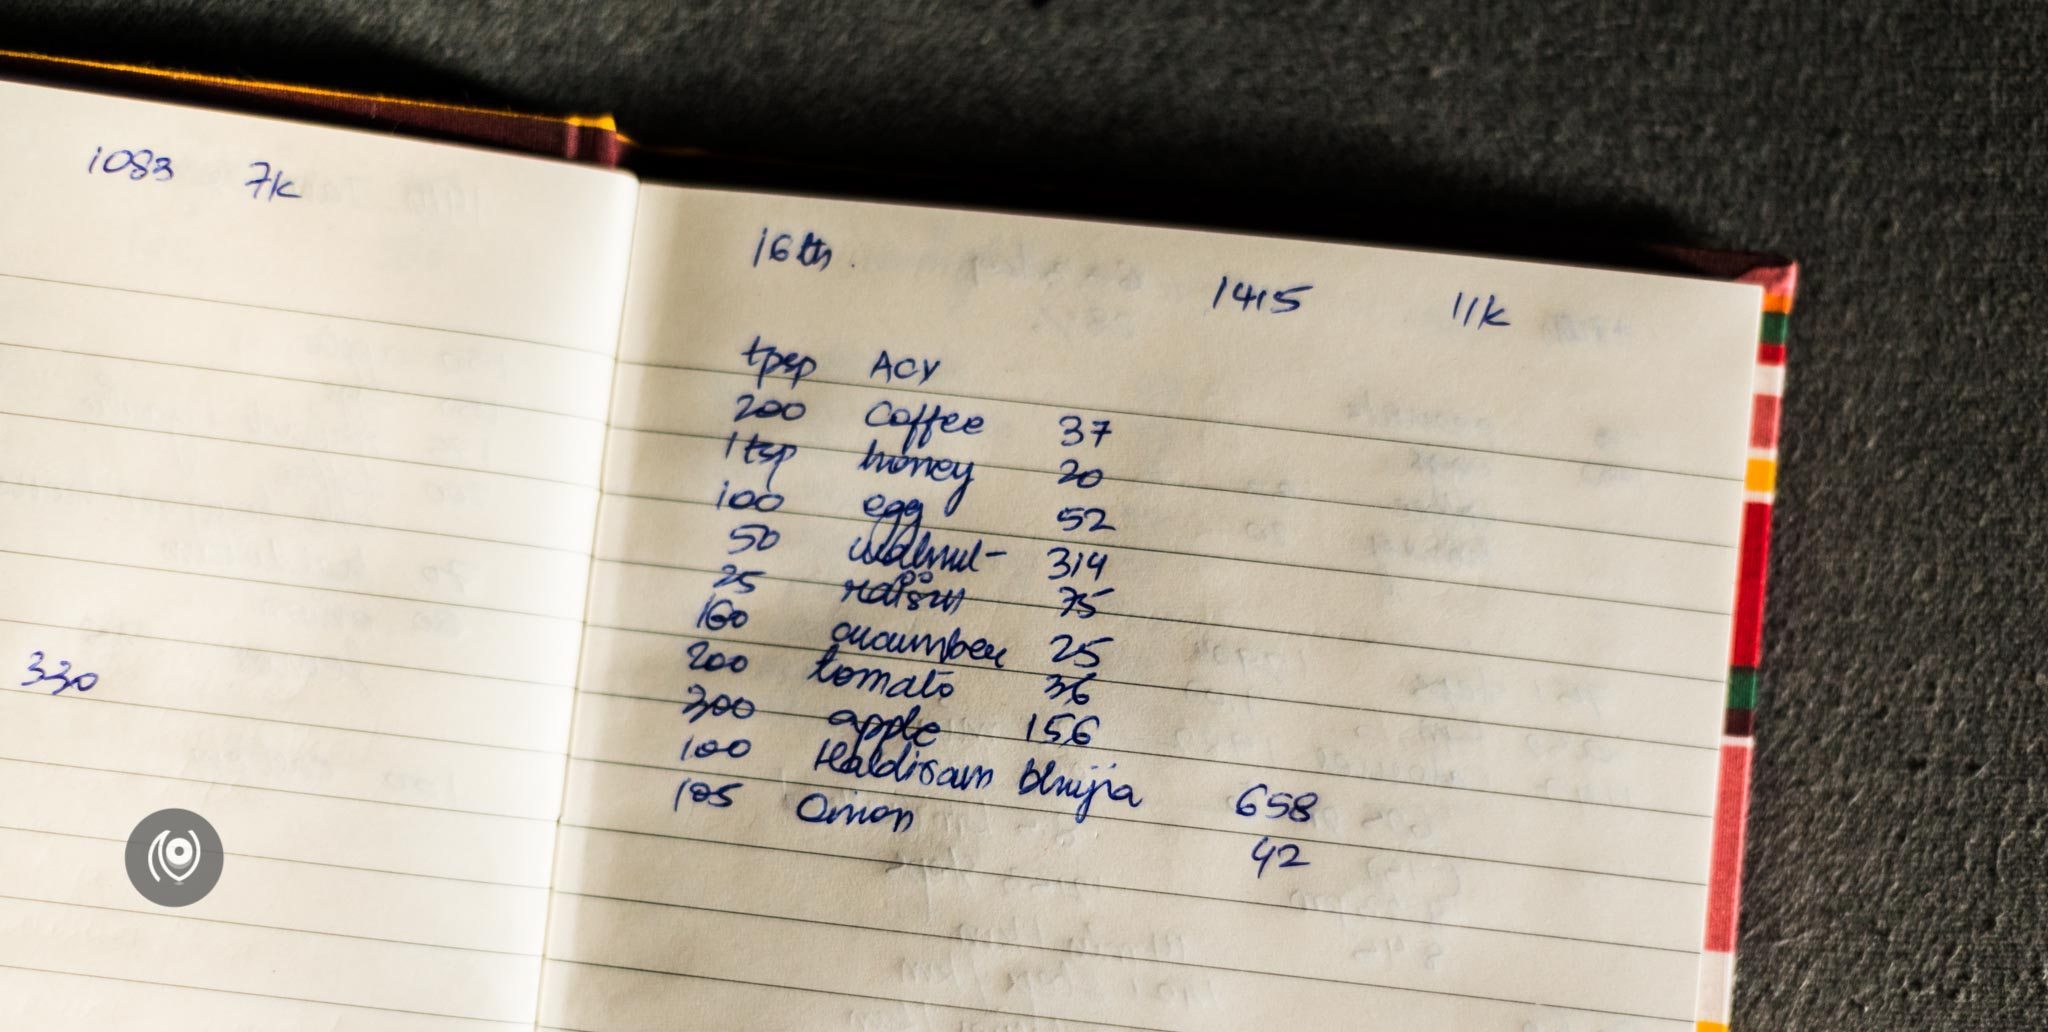 1083 7k
330
16th.
1415 11k
tpsp ACV
200 coffee 37
1 tsp honey 20
100 egg 52
50 walnut 314
25 raisin 75
160 cucumber 25
200 tomato 36
300 apple 156
100 Haldiram bhujia 658
105 Onion 42